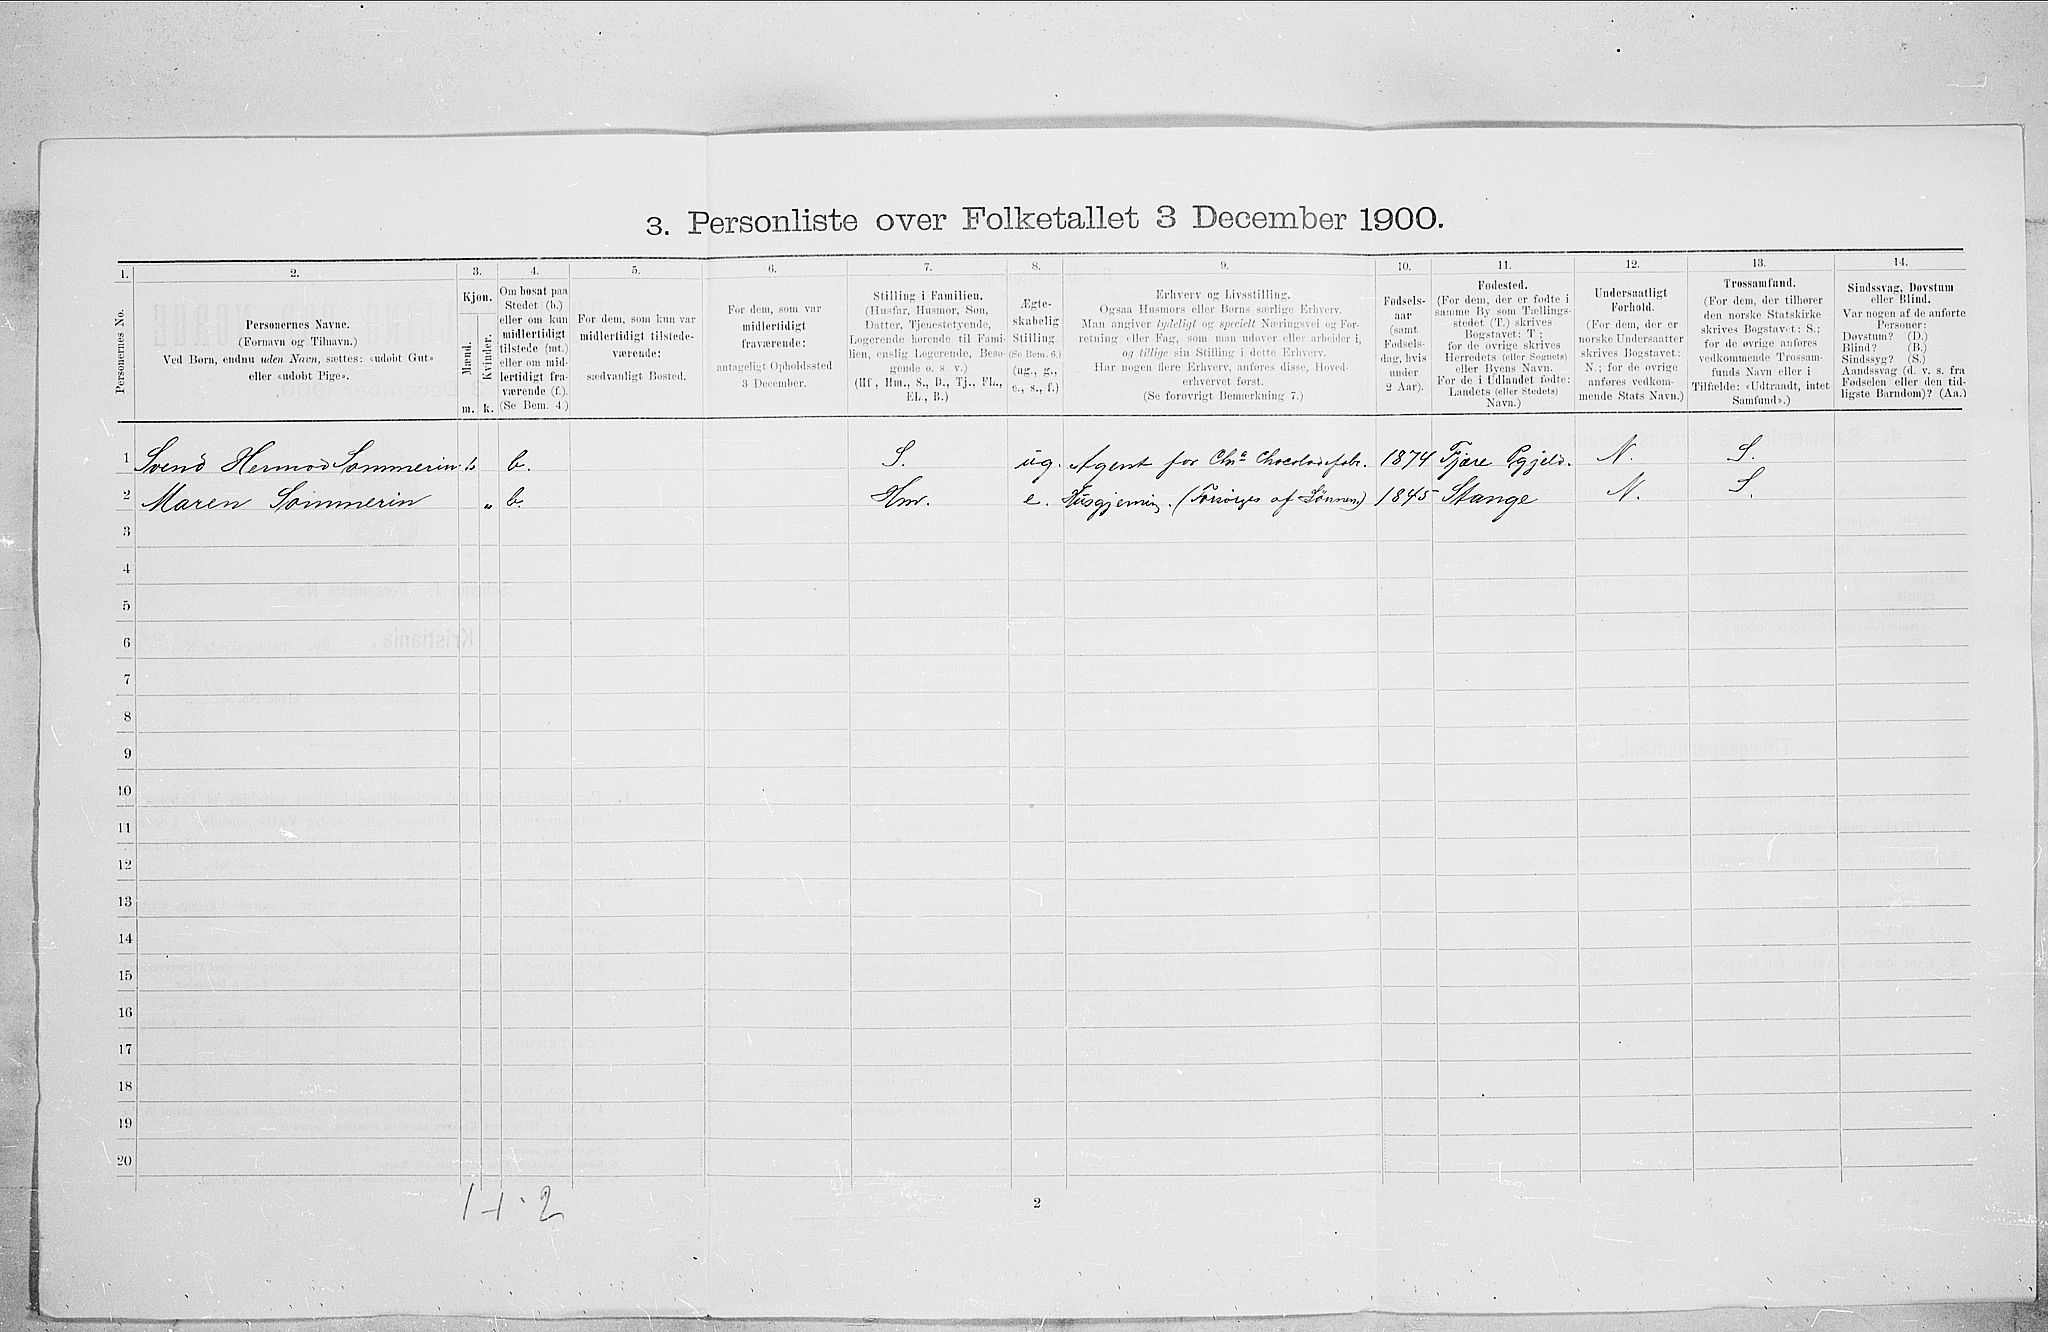 3. Personliste over Folketallet 3 December 1900.
1. 2. 3. 4. 5. 6. 7. 8. 9. 10. 11. 12. 13. 14.
Personernes No.
Personernes Navne.
(Fornavn og Tilnavn.)
Ved Børn, endnu uden Navn, sættes: «udøbt Gut»
eller «udøbt Pige».
Kjøn.
Mænd.
Kvinder.
m. k.
Om bosat paa
Stedet (b.)
eller om kun
midlertidigt
tilstede (mt.)
eller om mid-
lertidigt fra-
værende (f.).
(Se Bem. 4.)
For dem, som kun var
midlertidigt tilstede-
værende:
sædvanligt Bosted.
For dem, som var
midlertidigt
fraværende:
antageligt Opholdssted
3 December.
Stilling i Familien.
(Husfar, Husmor, Søn,
Datter, Tjenestetyende,
Logerende hørende til Fami-
lien, enslig Logerende, Besø-
gende o. s. v.)
(Hf., Hm., S., D., Tj., FL.,
EL., B.)
Ægte-
skabelig
Stilling.
(Se Bem. 6.)
(ug., g.,
e., s., f.)
Erhverv og Livsstilling.
Ogsaa Husmors eller Børns særlige Erhverv.
Man angiver tydeligt og specielt Næringsvei og For-
retning eller Fag, som man udøver eller arbeider i,
og tillige sin Stilling i dette Erhverv.
Har nogen flere Erhverv, anføres disse, Hoved-
erhvervet først.
(Se forøvrigt Bemærkning 7.)
Fødsels-
aar
(samt
Fødsels-
dag, hvis
under
2 Aar).
Fødested.
(For dem, der er fødte i
samme By som Tællings-
stedet (T.) skrives
Bogstavet: T;
for de øvrige skrives
Herredets (eller Sognets)
eller Byens Navn.
For de i Udlandet fødte:
Landets (eller Stedets)
Navn.)
Undersaatligt
Forhold.
(For dem, der er
norske Undersaatter
skrives Bogstavet:
N.; for de øvrige
anføres vedkom-
mende Stats Navn.)
Trossamfund.
(For dem, der tilhører
den norske Statskirke
skrives Bogstavet: S.;
for de øvrige anføres
vedkommende Trossam-
funds Navn eller i
Tilfælde: «Udtraadt, intet
Samfund».)
Sindssvag, Døvstum
eller Blind.
Var nogen af de anførte
Personer:
Døvstum? (D.)
Blind? (B.)
Sindssyg? (S.)
Aandssvag (d. v. s. fra
Fødselen eller den tid-
ligste Barndom)? (Aa.)
1 Svend Hermod Sommerin b. S. ug. Agent for Chra Chocoladefabr. 1874 Tjære Pgjeld. N. S.
2 Maren Sommerin " b. Hm. e. Husgjerning. (Forsørges af Sønnen) 1845 Stange N. S.
3
4
5
6
7
8
9
10
11
12
13
14
15
16
17
18
19
20
2